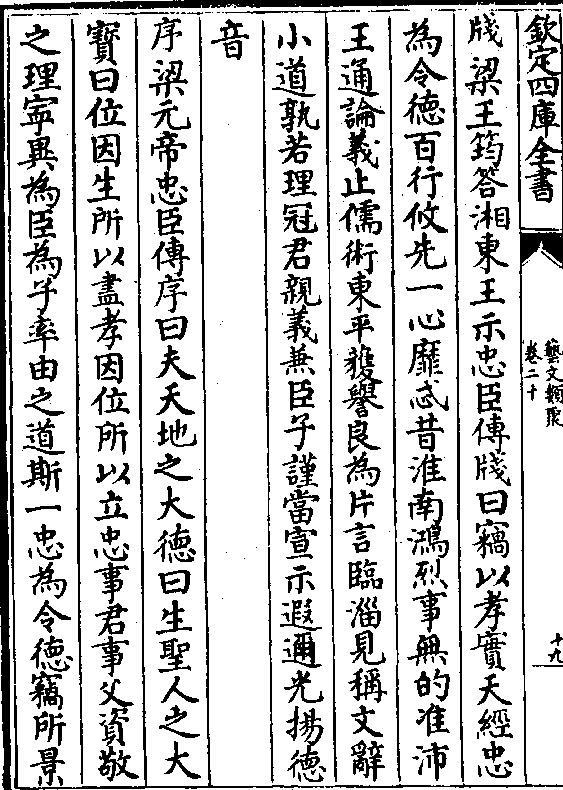 欽定四庫全書
藝文類聚
卷二十
十九
牋梁王筠答湘東王示忠臣傳牋曰竊以孝實天經忠
為令德百行攸先一心靡忒昔淮南鴻烈事無的准沛
王通論義止儒術東平獲譽良為片言臨淄見稱文辭
小道孰若理冠君親義兼臣子謹當宣示遐邇光揚德
音
序梁元帝忠臣傳序曰夫天地之大德曰生聖人之大
寶曰位因生所以盡孝因位所以立忠事君事父資敬
之理寧異為臣為子率由之道斯一忠為令德竊所景